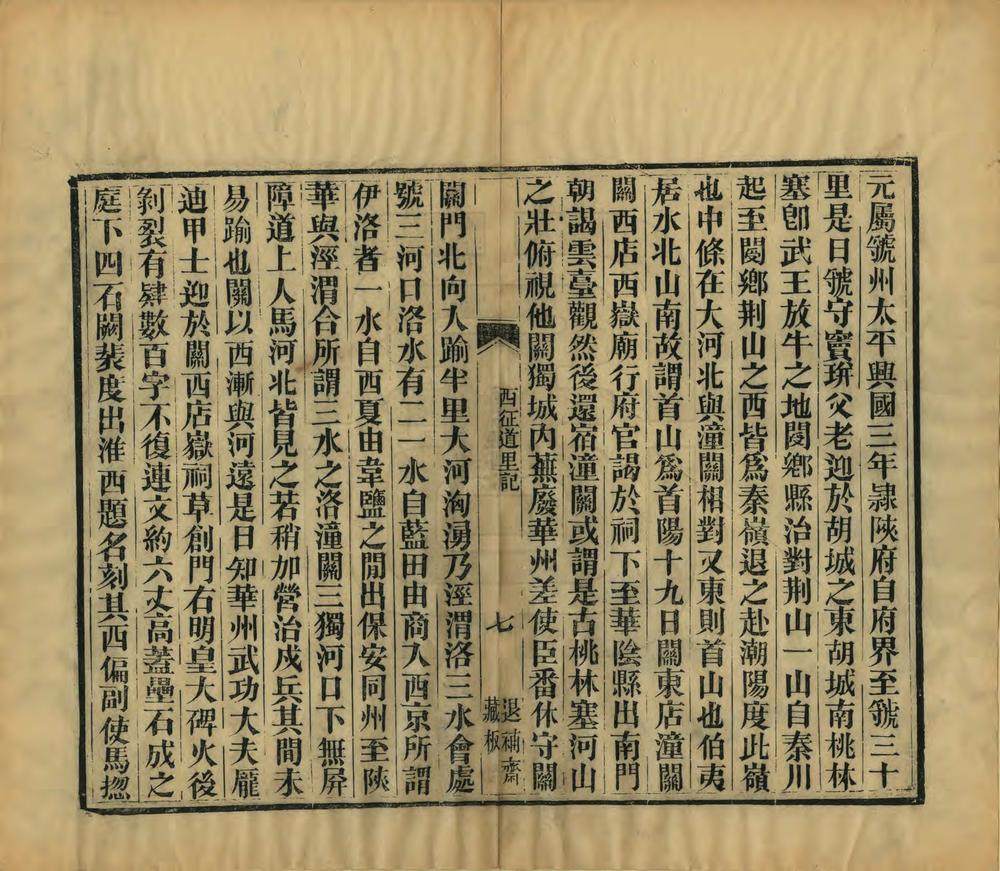 元屬虢州太平興國三年隸陝府自府界至虢三十
里是日虢守竇琲父老迎於胡城之東胡城南桃林
塞卽武王放牛之地閿鄉縣治對荆山一山自秦川
起至閿鄉荆山之西皆爲秦嶺退之赴潮陽度此嶺
也中條在大河北與潼關相對又東則首山也伯夷
居水北山南故謂首山爲首陽十九日關東店潼關
關西店西嶽廟行府官謁於祠下至華陰縣出南門
朝謁雲臺觀然後還宿潼關或謂是古桃林塞河山
之壯俯視他關獨城內蕪廢華州差使臣番休守關
西征道里記
七
退補齋
藏板
關門北向人踰半里大河洶湧乃涇渭洛三水會處
號三河口洛水有二一水自藍田由商入西京所謂
伊洛者一水自西夏由韋鹽之閒出保安同州至陝
華與涇渭合所謂三水之洛潼關三獨河口下無屏
障道上人馬河北皆見之若稍加營治戍兵其間未
易踰也關以西漸與河遠是日知華州武功大夫龐
迪甲士迎於關西店嶽祠草創門右明皇大碑火後
剝裂有肄數百字不復連文約六丈高蓋壘石成之
庭下四石闕裴度出淮西題名刻其西偏副使馬摠